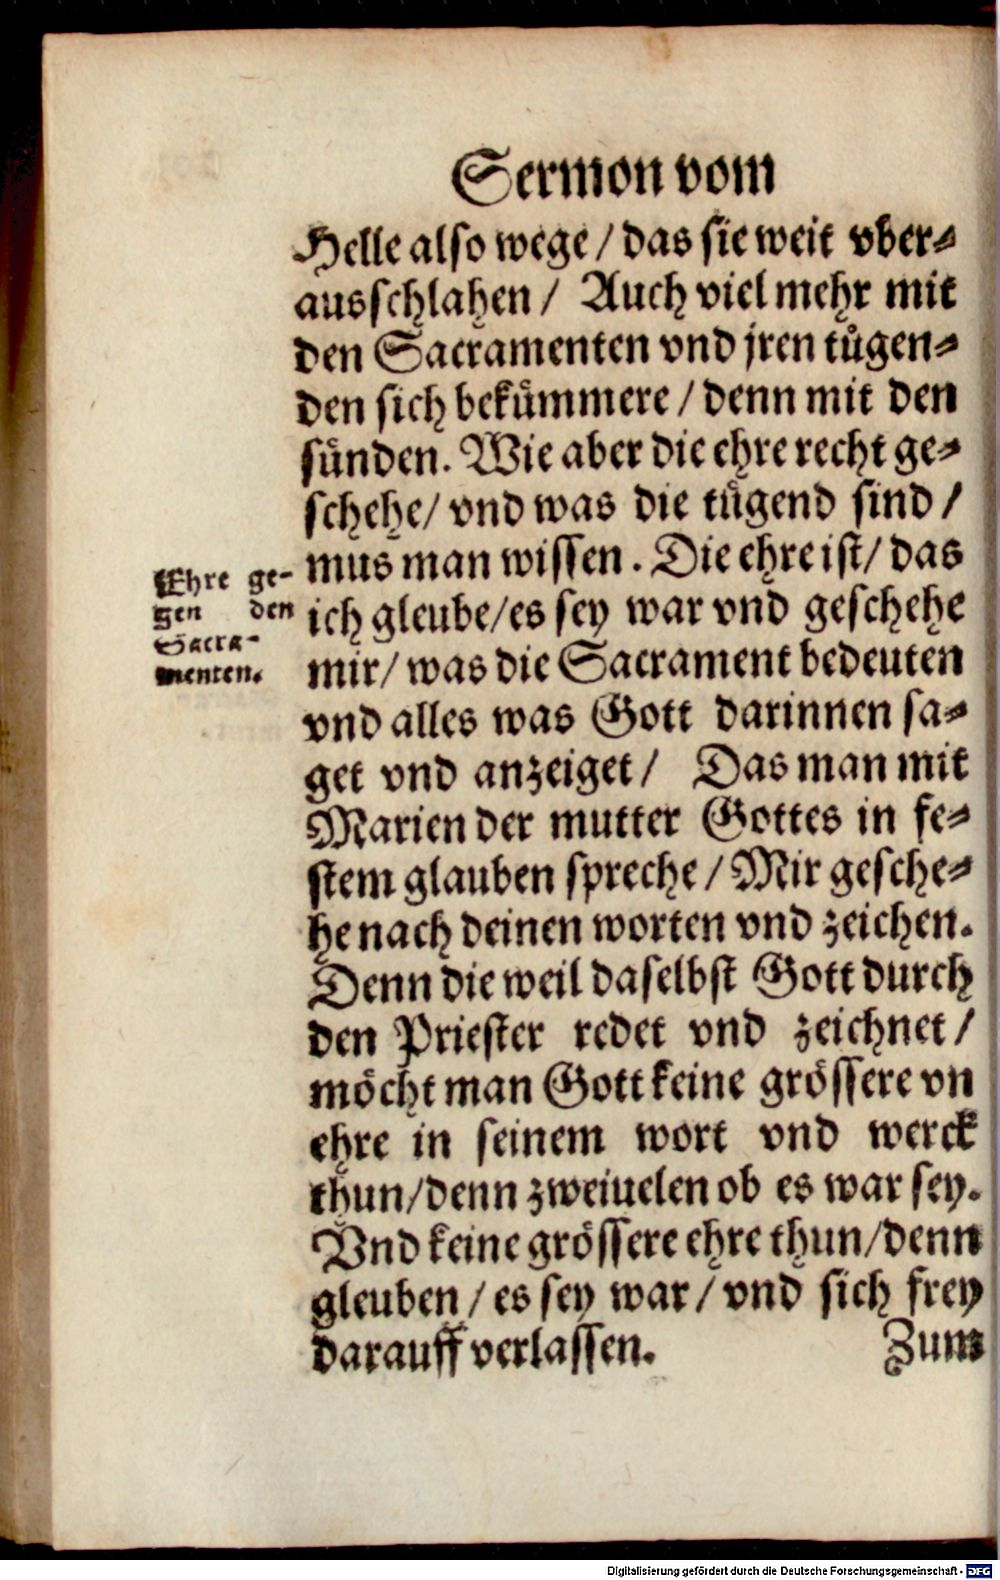 Sermon vom
Helle also wege / das sie weit vber⸗
ausschlahen / Auch viel mehr mit
den Sacramenten vnd jren tügen⸗
den sich bekümmere / denn mit den
sünden. Wie aber die ehre recht ge⸗
schehe / vnd was die tügend sind /
mus man wissen. Die ehre ist / das
ich gleube / es sey war vnd geschehe
mir / was die Sacrament bedeuten
vnd alles was Gott darinnen sa⸗
get vnd anzeiget / Das man mit
Marien der mutter Gottes in fe⸗
stem glauben spreche / Mir gesche⸗
he nach deinen worten vnd zeichen.
Denn die weil daselbst Gott durch
den Priester redet vnd zeichnet /
möcht man Gott keine grössere vn
ehre in seinem wort vnd werck
thun / denn zweiuelen ob es war sey.
Vnd keine grössere ehre thun / denn
gleuben / es sey war / vnd sich frey
darauff verlassen.
Zum
Ehre ge-
gen den
Sacra-
menten.
Digitalisierung gefördert durch die Deutsche Forschungsgemeinschaft - DFG